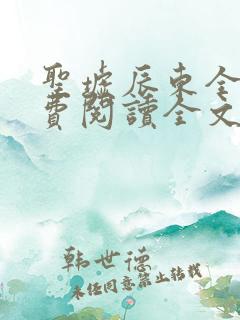 聖墟辰東全
費閱讀全文
韩世德
未经同意禁止转载